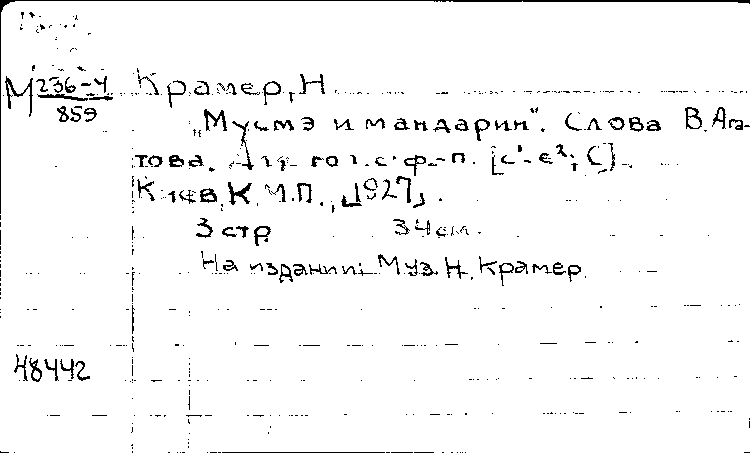 М 236-4
859
Крамер, Н.
„Мусмэ и мандарин". Слова В. Ага-
това. Для гол. с ф.-п. [c¹-e²; C].
Киев, К.М.П., [1927].
3 стр. 34 см.
На издании: Муз. Н. Крамер.
48442